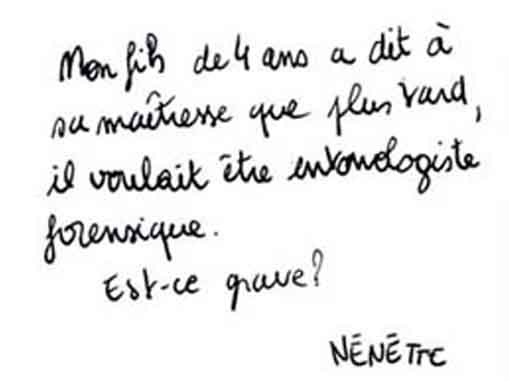 Mon fils de 4 ans a dit à
sa maîtresse que plus tard,
il voulait être entomologiste
forensique.
Est-ce grave?
NÉNÉTTE